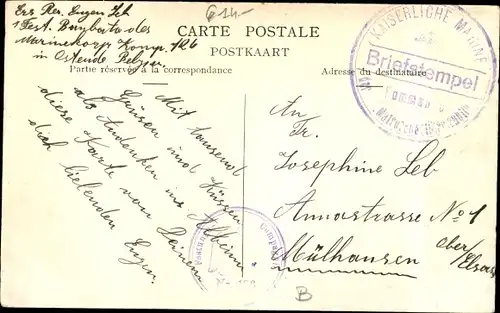 Ers. Res. Eugen Leb
614.–
1 Fest. Baubat. des
Marinekorps Komp. 126
in Ostende Belgien
CARTE POSTALE
POSTKAART
Partie réservée à la correspondance
Adresse du destinataire
KAISERLICHE MARINE
Briefstempel
Mit tausend
Grüsen und Küssen
als Andenken ins Album
diese Karte von Deinem
dich liebenden
Eugen.
An
Fr.
Josephine Leb
Annastrasse No 1
Mülhausen
Ober/Elsass
Compagnie
B